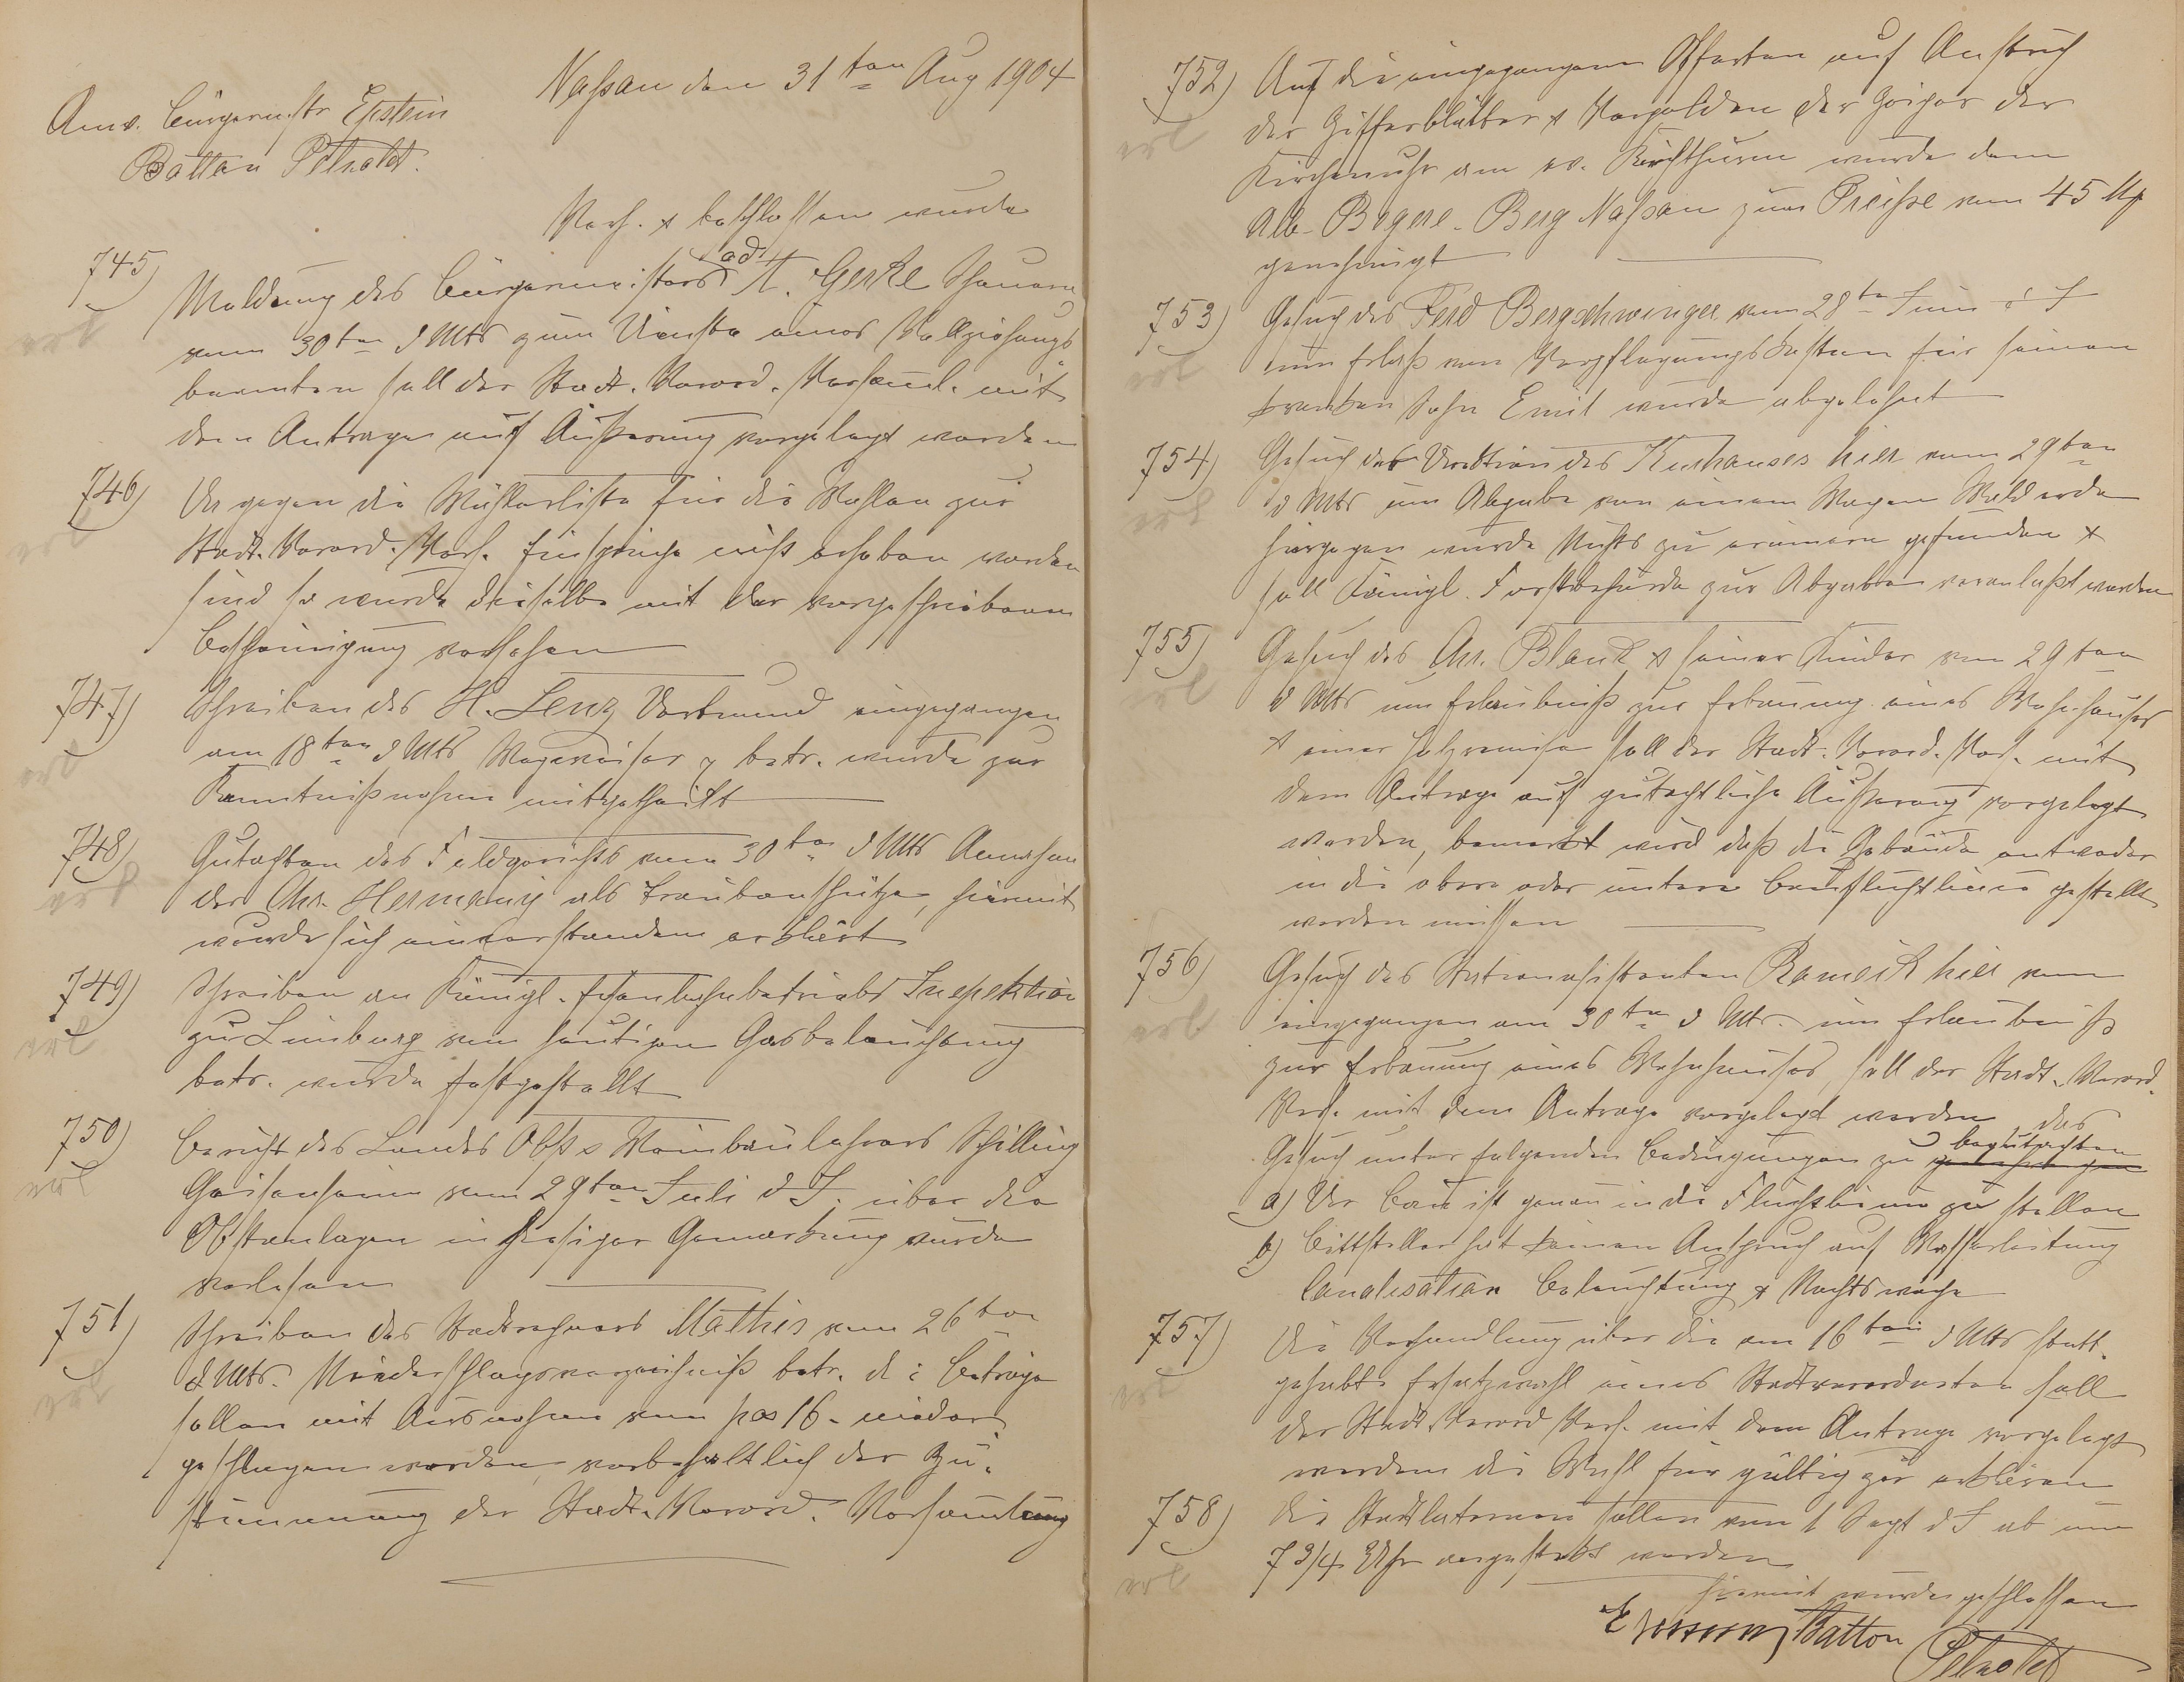 Naßau den 31ten Aug 1904
Anw. Bürgermstr Epstein
Batton Pelnold.
Verh. & beschlossen wurde
745) Meldung des Bürgermeisters ad. A. Gerke
vom 30ten d Mts zum Dienste eines Vollziehungs
beamten soll der Stadt. Verord. Versaml. mit
dem Antrage auf Äußerung vorgelegt werden
746) Da gegen die Wählerliste für die Wahlen zur
Stadt. Verord. Vers. Einsprüche nicht erhoben worden
sind so wurde dieselbe mit der vorgeschriebenen
Bescheinigung versehen
747) Schreiben des H. Lenz Dortmund eingegangen
am 18ten d Mts Wegweiser betr. wurde zur
Kenntnißnahme mitgetheilt
748) Gutachten des Feldgerichts vom 30ten d Mts Annahme
des Chr. Hermani als Traubenschütze, hiermit
wurde sich einverstanden erklärt
749) Schreiben an Königl. Eisenbahnbetriebs Inspektion
zu Limburg vom heutigen Gasbeleuchtung
betr. wurde festgestellt
750) Bericht des Landes Obst & Weinbaulehrers Schilling
Geisenheim vom 29ten Juli d J. über die
Obstanlagen in hiesiger Gemarkung wurde
verlesen
751) Schreiben des Stadtrechners Mathis vom 26ten
d Mts. Niederschlagsverzeichniß betr. die Beträge
sollen mit Ausnahme von pos 16. nieder
geschlagen werden vorbehaltlich der Zu-
stimmung der Stadt. Verord. Versamlung
752) Auf die eingegangenen Offerten auf Anstrich
der Zifferblätter & Vergolden der Zeiger der
Kirchenuhr am ev. Kirchthurm wurde dem
Alb. Bogere. Berg Naßau zum Preiße von 45 Mk
genehmigt
753) Gesuch des Ferd Bergschwinger vom 28ten Juni d J
um Erlaß von Verpflegungskosten für seinen
kranken Sohn Emil wurde abgelehnt
754) Gesuch der Direktion des Kurhauses hier vom 29ten
d Mts um Abgabe von einem Wagen Walderde
hiergegen wurde Nichts zu erinnern gefunden &
soll Königl. Forstbehörde zur Abgabe veranlaßt werden
755) Gesuch des Chr. Blank & seiner Kinder vom 29ten
d Mts um Erlaubniß zur Erbauung eines Wohnhauses
& einer Holzremise soll der Stadt. Verord. Vers. mit
dem Antrage auf gutachtliche Äußerung vorgelegt
werden, bemerkt wird daß die Gebäude entweder
in die obere oder untere Baufluchtlinie gestellt
werden müssen
756) Gesuch des Stationsassistenten Rameik hier vom
eingegangen am 30ten d Mts. um Erlaubniß
zur Erbauung eines Wohnhauses, soll der Stadt. Verord.
Vers. mit dem Antrage vorgelegt werden das
Gesuch unter folgenden Bedingungen zu begutachten
a) Der Bau ist genau in die Fluchtlinie zu stellen
b) Bittsteller hat keinen Anspruch auf Wasserleitung
Canalisation Beleuchtung & Nachtswache
757) Die Verhandlung über die am 16ten d Mts statt.
gehabte Ersatzwahl eines Stadtverordneten soll
der Stadt. Verord Vers. mit dem Antrage vorgelegt
werden die Wahl für gültig zu erklären
758) Die Stadtlaternen sollen vom 1 Sept d J ab um
7 3/4 Uhr angesteckt werden
hiermit wurde geschlossen
Batton